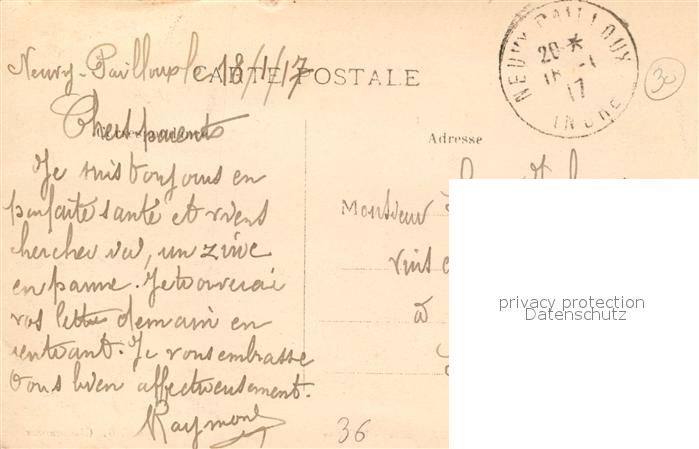 Neuvy-Pailloux le 18/1/17
CARTE POSTALE
NEUVY-PAILLOUX
20 *
18 -1
17
INDRE
30
Chers parents
Adresse
Je suis toujours en
parfaite santé et viens
chercher ici, un zinc
en panne. Je trouverai
vos lettres demain en
rentrant. Je vous embrasse
tous bien affectueusement.
Raymond
Monsieur
à
36
privacy protection
Datenschutz